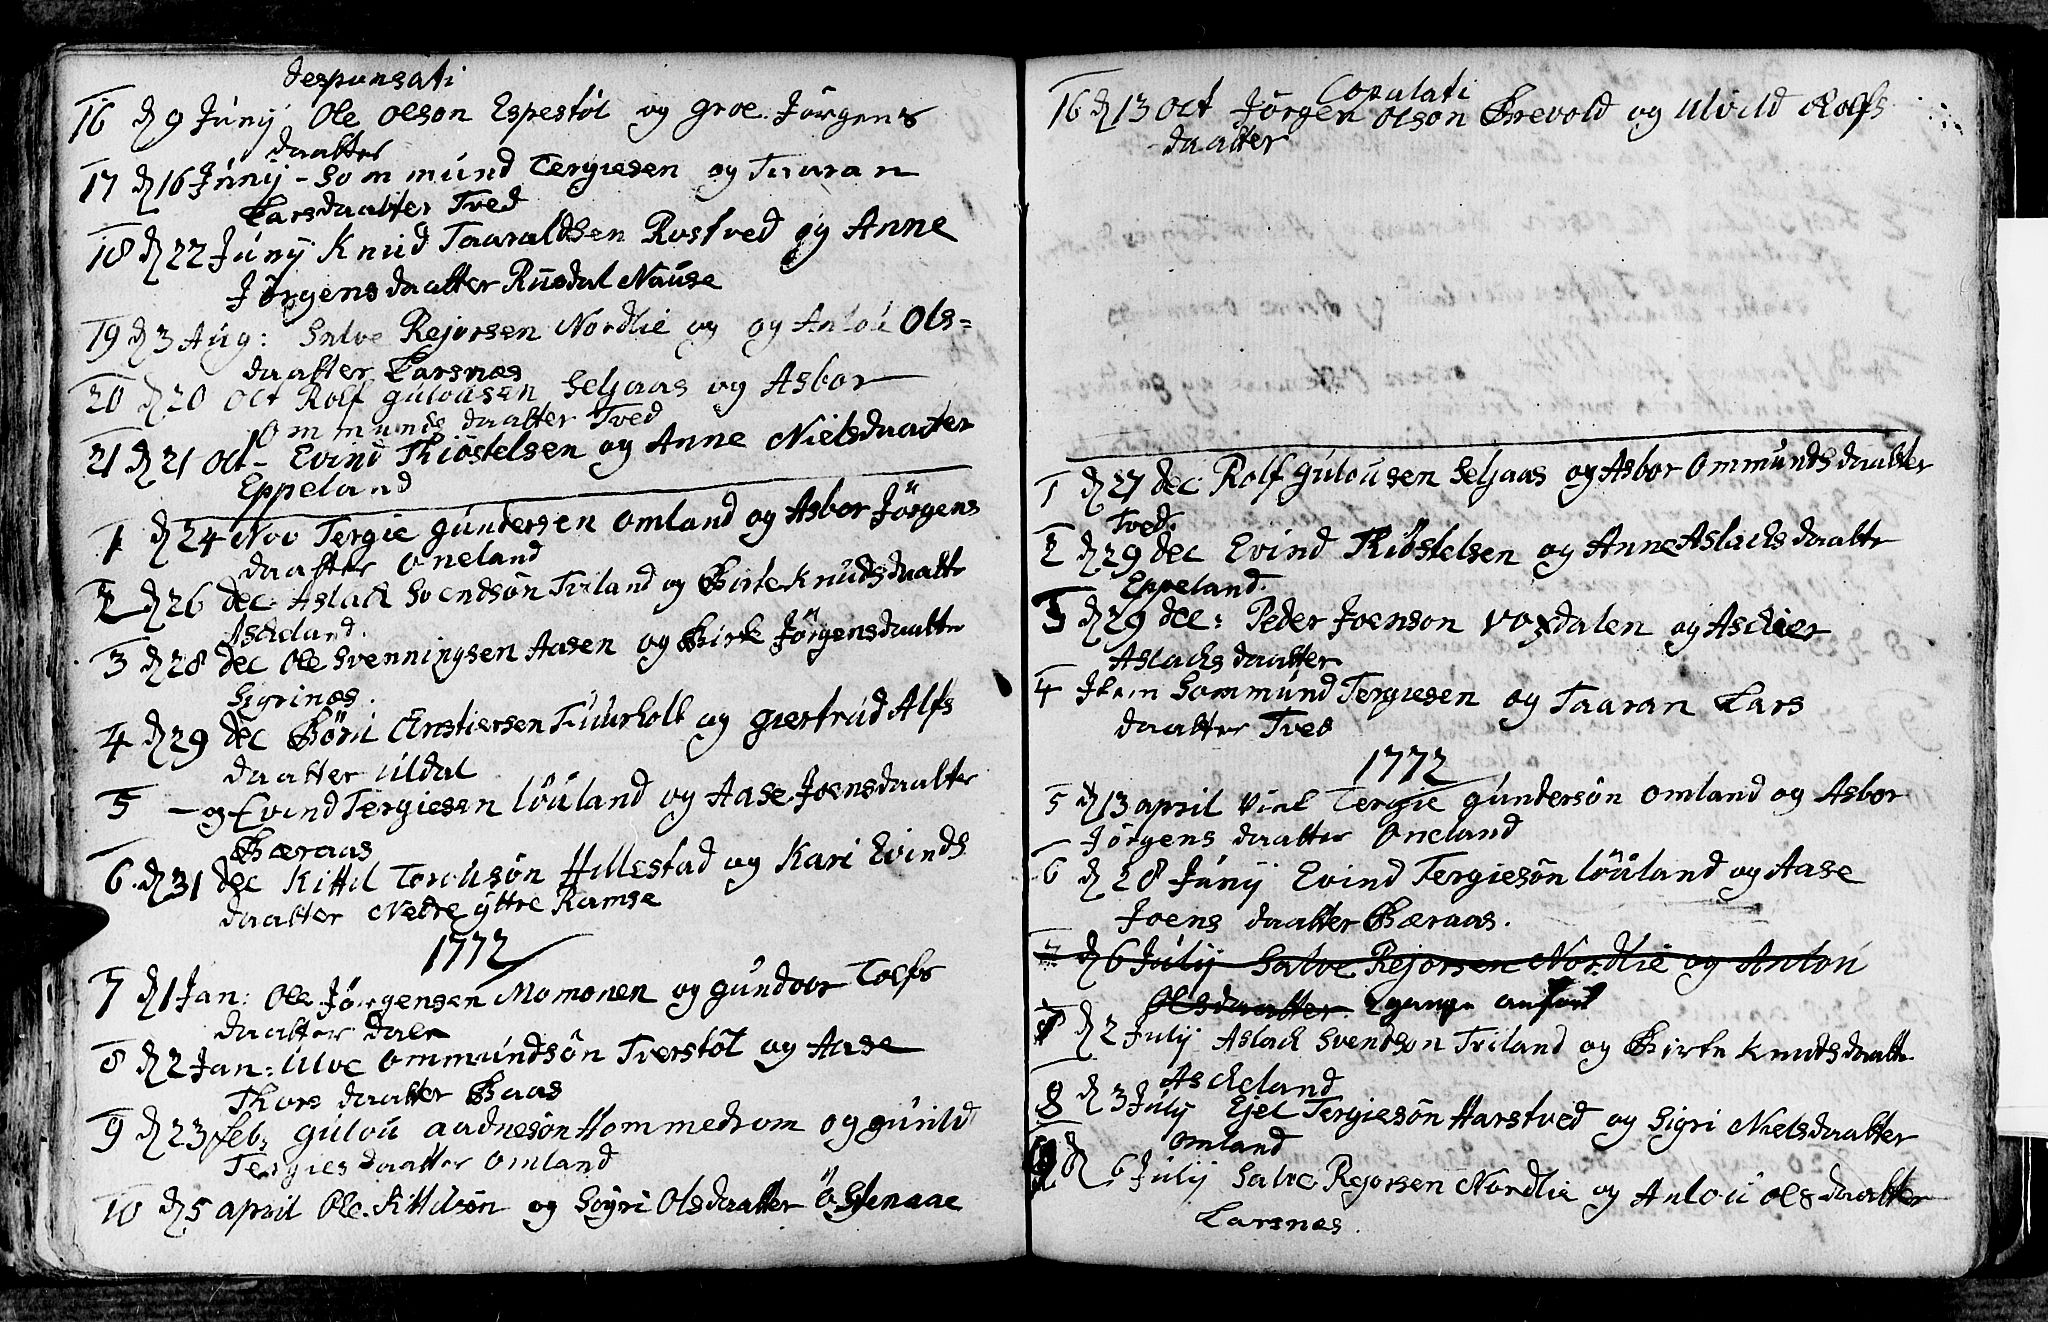 Despunsati
16 d 9 Junÿ Ole Olson Espestöl og Groe Jörgens
daatter
17 d 16 Junÿ - Sommund Tergiesen og Taaran
Larsdaatter Tved
18 d 22 Junÿ Knud Taaraldsen Rostved og Anne
Jörgensdaatter Rusdal Nause
19 d 3 Aug: Salve Rejorsen Nordlie og og Anlou Ols=
daatter Larsnæs
20 d 20 Oct Rolf Gulousen Seljaas og Asbor
Ommundsdaatter Tved
21 d 21 Oct- Evind Thiöstelsen og Anne Nielsdaatter
Eppeland
1 d 24 Nov Tergie Gundersen Omland og Asbor Jörgens
daatter Oneland
2 d 26 dec. Aslach Svendsön Triland og Birte Knudsdaattr
Ascheland.
3 d 28 dec Ole Svenningsen Aasen og Birte Jörgensdaattr
Sigrinæs.
4 d 29 dec Börii Enstiersen Fuurholt og Giertrud Alfs
daatter Uldal
5 — og Evind Tergiesen Löuland og Aase Joensdaatter
Bæraas
6. d 31 dec Kittil Torcilsön Hillestad og Kari Evinds
daatter Nedre Yttre Ramse
1772
7 d 1 Jan: Ole Jörgensen Momonen og Gundvor Toefs
daatter Dale
8 d 2 Jan: Ulve Ommundsön Tverstöl og Aase
Thors daatter Baas
9 d 23 Feb: Gulou Aadnesön Hommedrom og Gunild
Tergiesdaatter Omland
10 d 5 April Ole Kittilsön og Sigri Olsdaatter Östenaae
Copulati
16 d 13 Oct Jörgen Olson Brevold og Ulvild Rolfs
daatter
1 d 27 dec: Rolf Gulousen Seljaas og Asbor Ommundsdaatter
Tved.
2 d 29 dec Evind Thiöstelsen og Anne Aslachsdaattr
Eppeland.
3 d 29 dec: Peder Joenson Voxdalen og Aschier
Aslachsdaatter
4 Item Sommund Tergiesen og Taaran Lars
daatter Tved
1772
5 d 13 april Tergie Gundersön Omland og Asbor
Jörgens daatter Oneland
6 d 28 Junÿ Evind Tergiesön Löuland og Aase
Joens daatter Bæraas.
7 d 6 Julÿ Salve Rejorsen Nordlie og Anlou
Olsdaatter 2 gange anfört
7 d 2 July Aslach Svendson Triland og Birte Knudsdaattr
Ascheland
8 d 3 July Ejel Tergiesön Harstved og Sigri Nielsdaatter
Omland
9 d 6 July Salve Rejorsen Nordlie og Anlou Olsdaatter
Larsnæs.